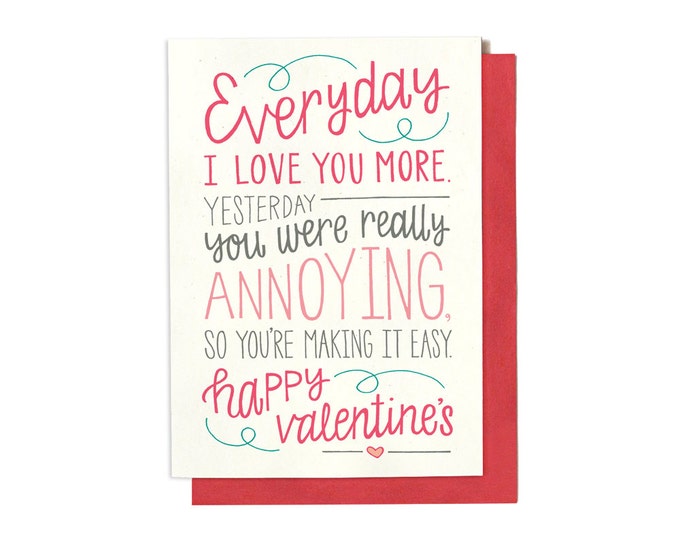 Everyday
I LOVE YOU MORE.
YESTERDAY
you were really
ANNOYING,
SO YOU'RE MAKING IT EASY.
happy
valentine's